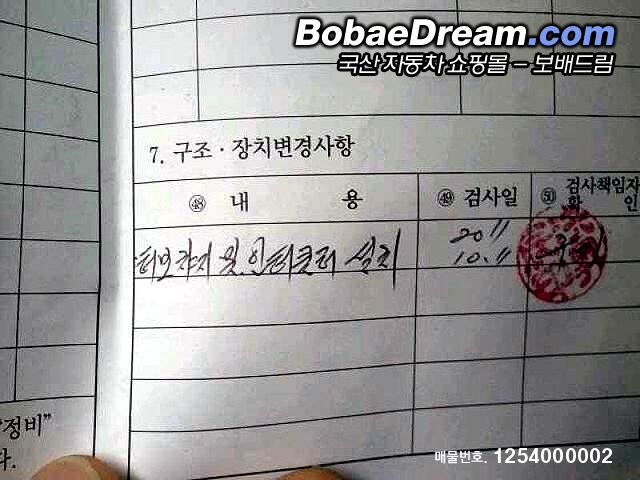 BobaeDream.com
국산 자동차 쇼핑몰 - 보배드림
7. 구조 · 장치변경사항
㊽ 내 용 ㊾ 검사일 ㊿ 검사책임자
확 인
터보차져 및 인터쿨러 설치 2011
10.11
"정비"
다.
매물번호. 1254000002